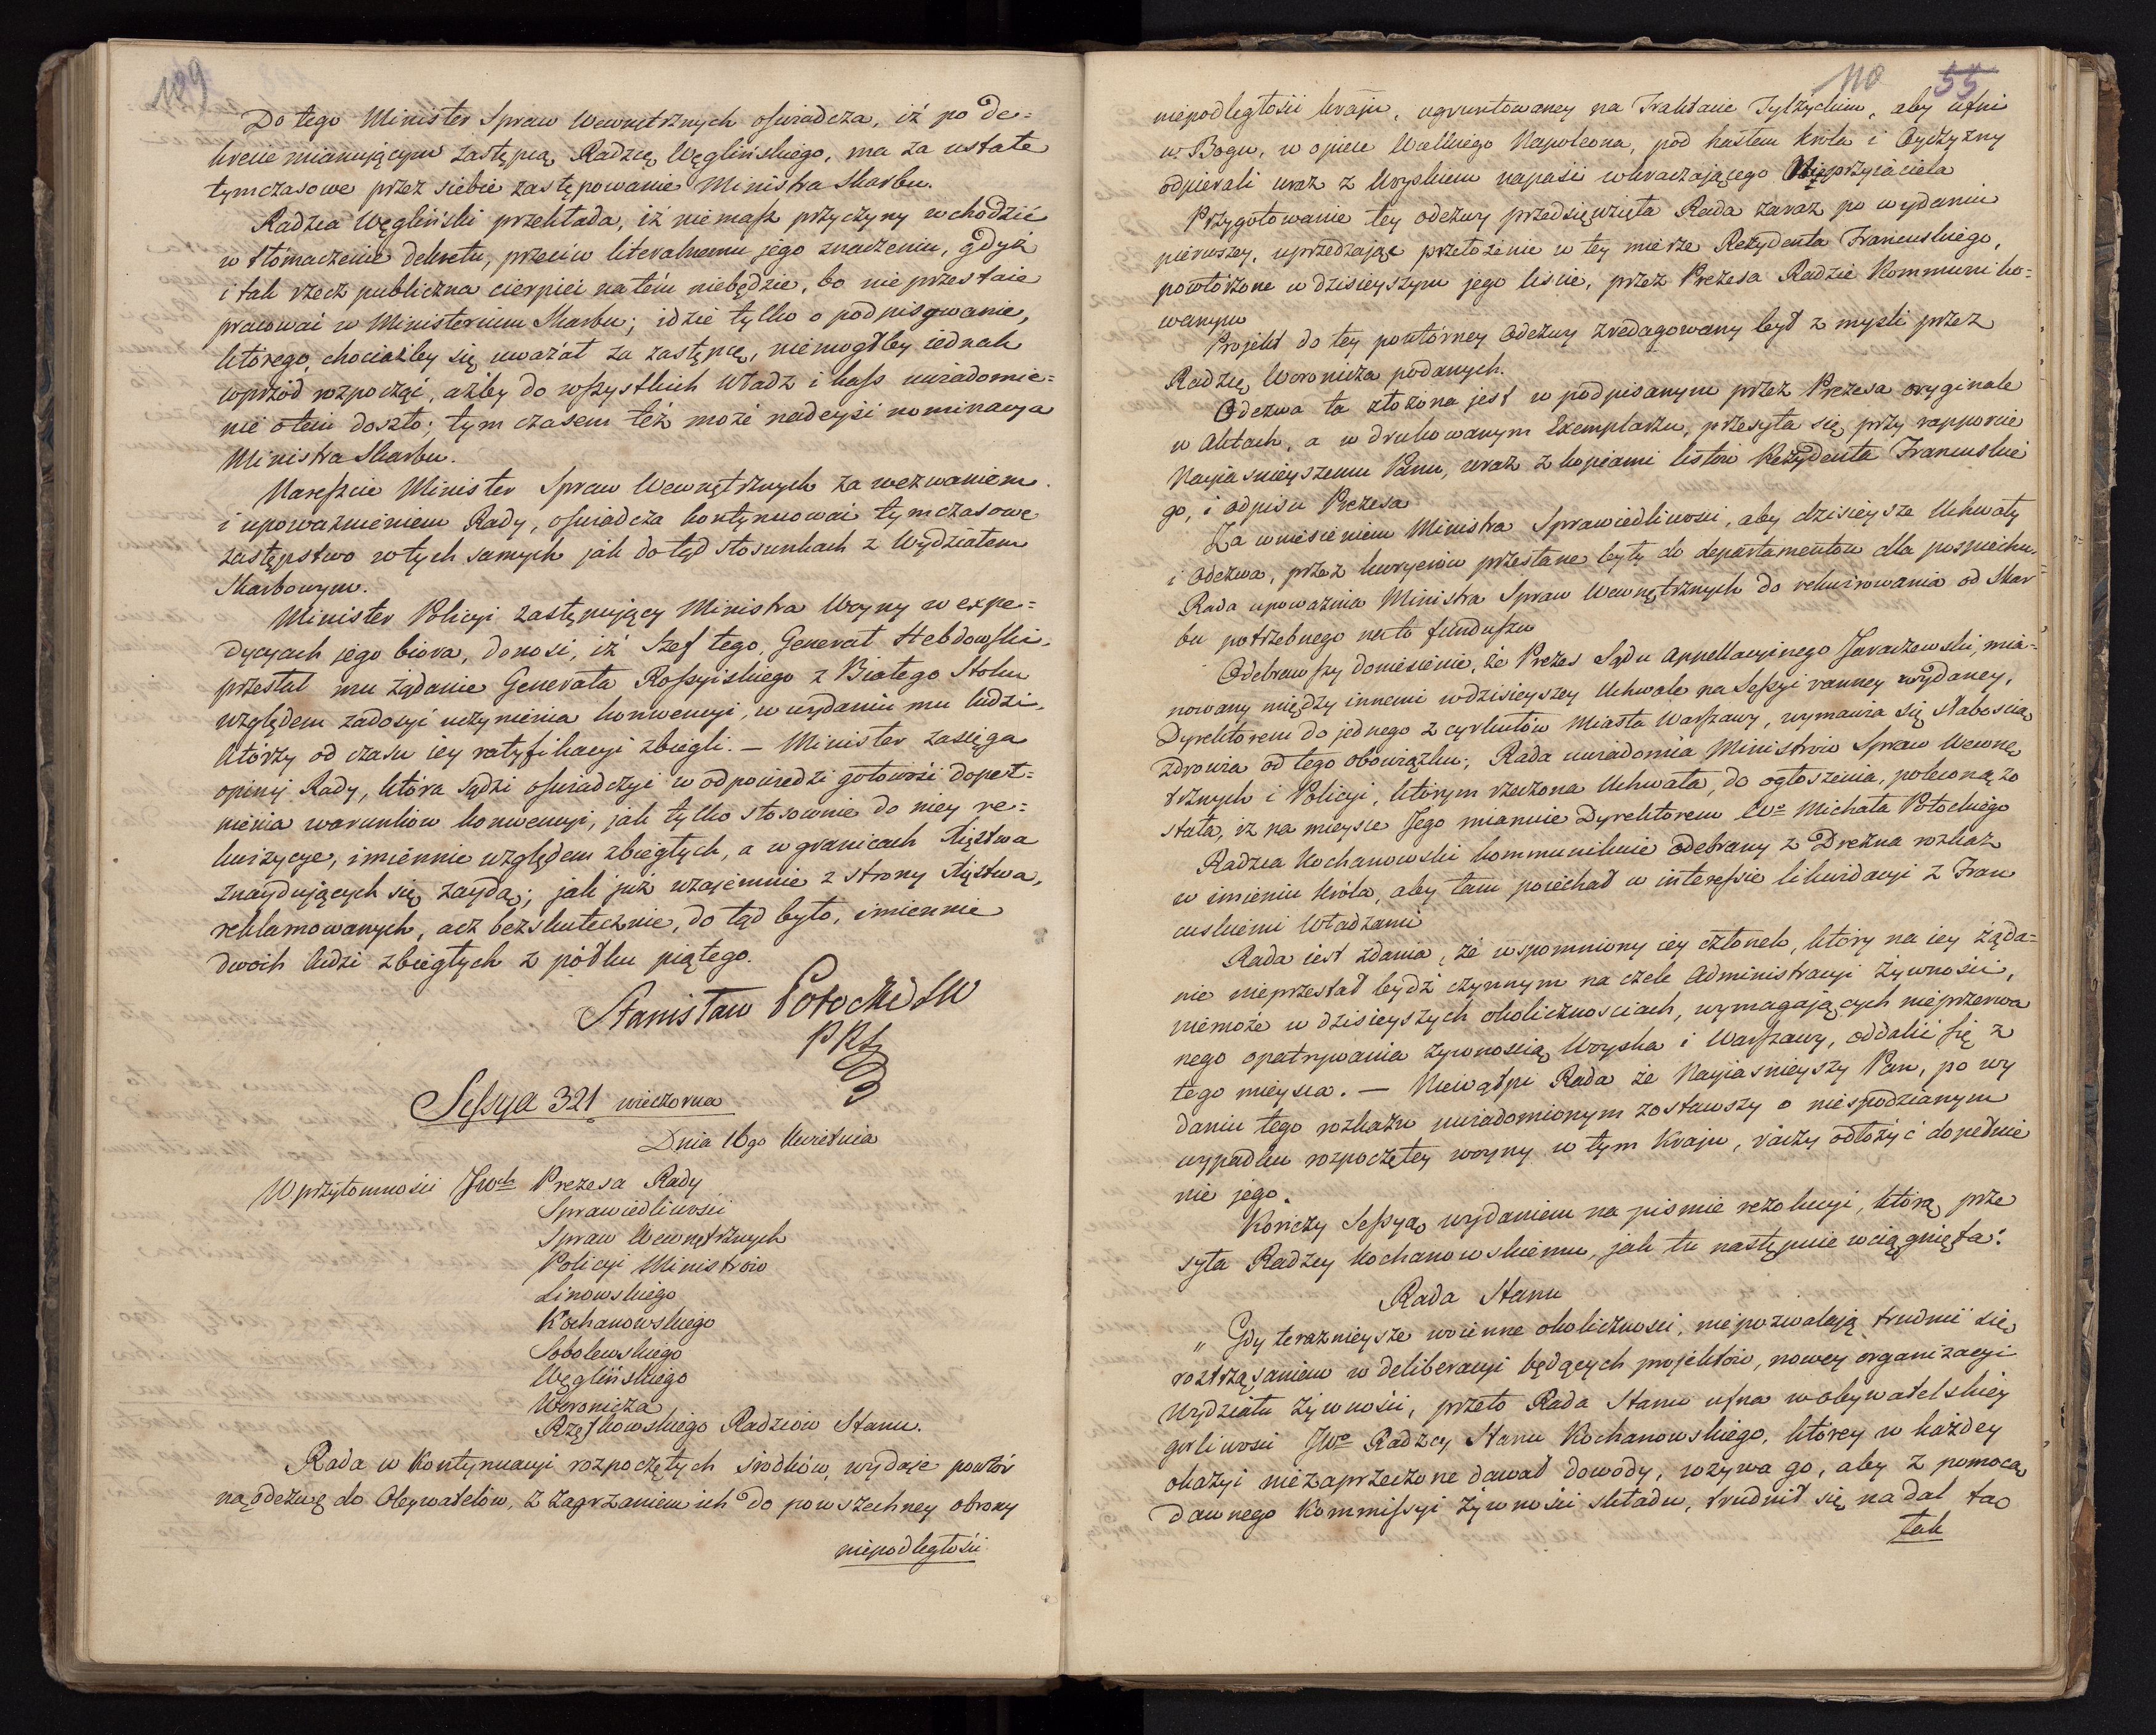 109
Do tego Minister Spraw Wewnętrznych oświadcza, iż po de=
krecie mianującym zastępcą Radzcę Węglińskiego, ma za ustałe
tymczasowe przez siebie zastępowanie Ministra Skarbu.
Radzca Węgliński przekłada, iż niemasz przyczyny wchodzić
w tłómaczenie dekretu, przeciw literalnemu jego znaczeniu, gdyż
i tak rzecz publiczna cierpieć na tém niebędzie, bo nie przestaie
pracować w Ministerium Skarbu; idzie tylko o podpisywanie,
którego, chociażby się uważał za zastępcę, niemógłby iednak
wprzód rozpocząć, ażby do wszystkich Władz i kass uwiadomie=
nie o tém doszło; tym czasem też może nadeyść nominacya
Ministra Skarbu.
Nareszcie Minister Spraw Wewnętrznych za wezwaniem
i upoważnieniem Rady, oświadcza kontynuować tymczasowe
zastępstwo w tych samych jak dotąd stosunkach z Wydziałem
Skarbowym.
Minister Policyi zastępujący Ministra Woyny w expe=
dycyach jego biora, donosi, iż Szef tego, Generał Hebdowski,
przesłał mu żądanie Generała Rossyiskiego z Białego Stoku
względem zadosyć uczynienia konwencyi, w wydaniu mu ludzi,
którzy od czasu iey ratyfikacyi zbiegli. — Minister zasięga
opinij Rady, która sądzi oświadczyć w odpowiedzi gotowość dopeł=
nienia warunków konwencyi, jak tylko stosownie do niey re=
kwizycye, imiennie względem zbiegłych, a w granicach Xięstwa
znaydujących się zayda; jak już wzajemnie z strony Xięstwa,
reklamowanych, acz bezskutecznie, do tąd było, imiennie
dwóch ludzi zbiegłych z półku piątego.
Stanisław Potocki SW
PRS
Sessya 321 wieczorna
Dnia 16go Kwietnia
W przytomności JWch Prezesa Rady
Sprawiedliwości
Spraw Wewnętrznych
Policyi Ministrów
Linowskiego
Kochanowskiego
Sobolewskiego
Węglińskiego
Woronicza
Rzętkowskiego Radzców Stanu.
Rada w kontynuacyi rozpoczętych środków, wydaje powtór
ną odezwę do Obywatelów, z zagrzaniem ich do powszechney obrony
niepodległości
110 55
niepodległości kraju, ugruntowaney na Traktacie Tylżyckim, aby ufni
w Bogu, w opiece Wielkiego Napoleona, pod hasłem Króla i Oyczyzny
odpierali wraz z Woyskiem napaść wkraczającego Nieprzyiaciela
Przygotowanie tey odezwy przedsięwzięła Rada zaraz po wydaniu
pierwszey, uprzedzając przełożenie w tey mierze Rezydenta Francuskiego,
powtórzone w dzisieyszym jego liście, przez Prezesa Radzie kommuniko=
wanym
Projekt do tey powtórney Odezwy zredagowany był z myśli przez
Radzcę Woronicza podanych.
Odezwa ta złożona jest w podpisanym przez Prezesa oryginale
w Aktach, a w drukowanym Exemplarzu, przesyła się przy rapporcie
Nayiaśnieyszemu Panu, wraz z kopiami listów Rezydenta Francuskie
go, i odpisu Prezesa
Za wniesieniem Ministra Sprawiedliwości, aby dzisieysze Uchwały
i Odezwa, przez kuryerów przesłane były do departamentów dla pospiechu,
Rada upoważnia Ministra Spraw Wewnętrznych do rekwirowania od Skar=
bu potrzebnego na to funduszu
Odebrawszy doniesienie, że Prezes Sądu Appellacyinego Zaraczewski, mia=
nowany między innemi w dzisieyszey Uchwale na Sessyi ranney wydaney,
Dyrektorem do jednego z cyrkułów Miasta Warszawy, wymawia się słabością
zdrowia od tego obowiązku; Rada uwiadomia Ministrów Spraw Wewnę
trznych i Policyi, którym rzeczona Uchwała, do ogłoszenia, poleconą zo
stała, iż na mieysce Jego mianuie Dyrektorem Wo Michała Potockiego
Radzca Kochanowski kommunikuie odebrany z Drezna rozkaz
w imieniu Króla, aby tam poiechał w interessie likwidacyi z Fran
cuskiemi Władzami
Rada iest zdania, że wspomniony iey członek, który na iey żąda=
nie nieprzestał bydź czynnym na czele Administracyi Żywności,
niemoże w dzisieyszych okolicznościach, wymagających nieprzerwa
nego opatrywania żywnością Woyska i Warszawy, oddalić się z
tego mieysca. — Niewątpi Rada że Nayiaśnieyszy Pan, po wy
daniu tego rozkazu uwiadomionym zostawszy o niespodzianym
wypadku rozpoczętey woyny w tym Kraju, raczy odłożyć dopełnie
nie jego.
Kończy Sessyą wydaniem na piśmie rezolucyi, którą prze
syła Radzcy Kochanowskiemu, jak tu następuie wciągnięta:
Rada Stanu
„Gdy teraznieysze woienne okoliczności, niepozwalają trudnić się
roztrząsaniem w deliberacyi będących projektów, nowey organizacyi
Wydziału Żywności, przeto Rada Stanu ufna w obywatelskiey
gorliwości JWo Radzcy Stanu Kochanowskiego, którey w każdey
okazyi niezaprzeczone dawał dowody, wzywa go, aby z pomocą
dawnego Kommissyi żywności składu, trudnił się nadal tą
tak